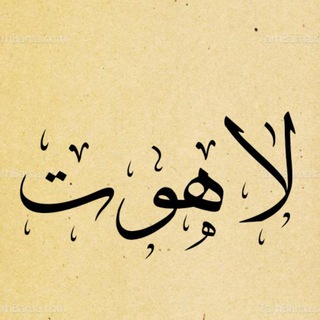 لاهوت